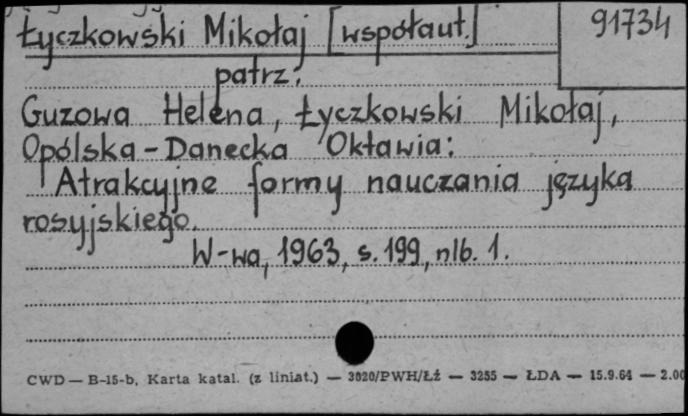 Łyczkowski Mikołaj [współaut.]
91734
patrz:
Guzowa Helena, Łyczkowski Mikołaj,
Opólska-Danecka Oktawia:
Atrakcyjne formy nauczania języka
rosyjskiego.
W-wa, 1963, s. 199, nlb. 1.
CWD — B-15-b, Karta katal. (z liniat.) — 3020/PWH/Łź — 3255 — ŁDA — 15.9.64 — 2.00